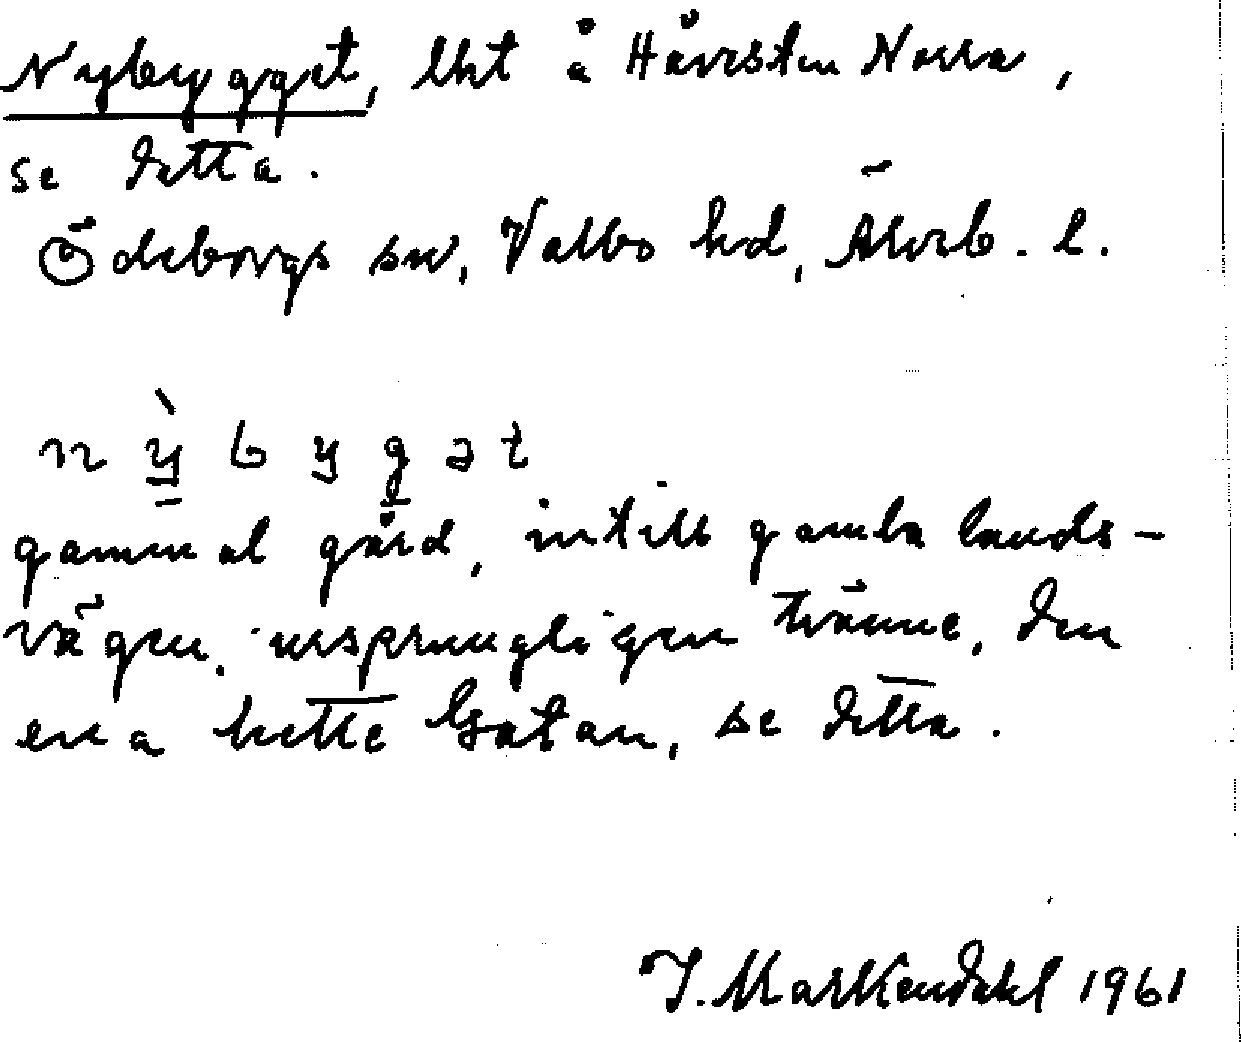 Nybygget, lht å Håvesten Norra,
se detta.
Ödeborgs sn, Valbo hd, Älvsb. l.
nỳbygət
gammal gård, intill gamla lands-
vägen, ursprungligen tvänne, den
ena hette Gatan, se detta.
J. Markendahl 1961